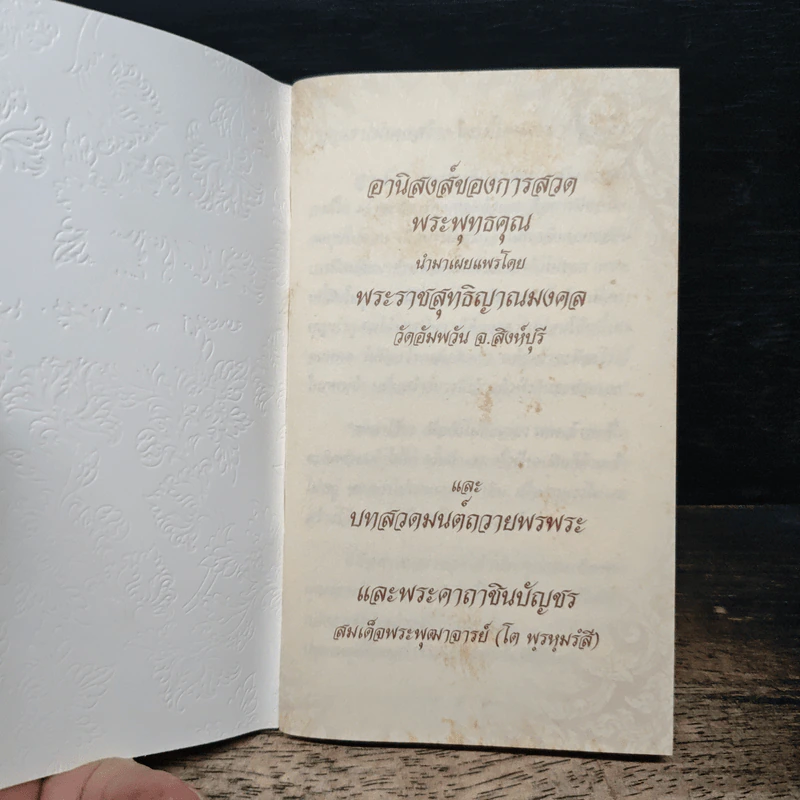 อานิสงส์ของการสวด
พระพุทธคุณ
นำมาเผยแพร่โดย
พระราชสุทธิญาณมงคล
วัดอัมพวัน จ.สิงห์บุรี
และ
บทสวดมนต์ถวายพรพระ
และพระคาถาชินบัญชร
สมเด็จพระพุฒาจารย์ (โต พฺรหฺมรํสี)